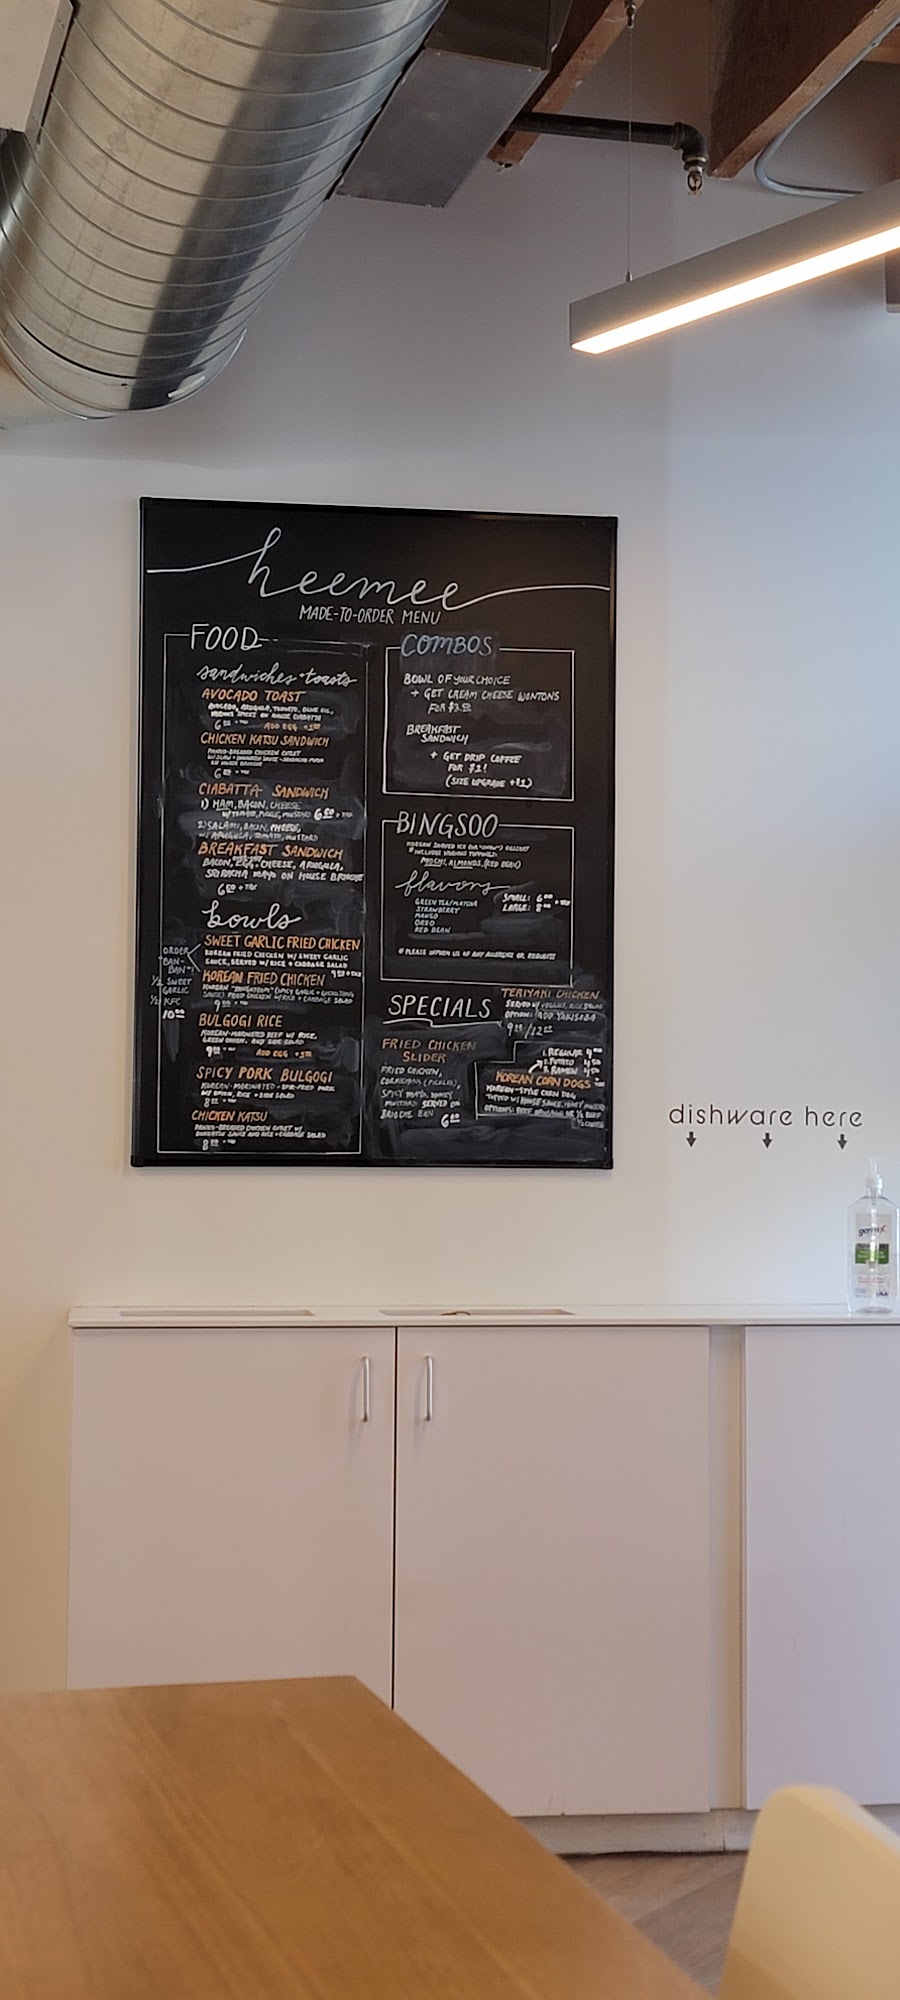 heemee
MADE-TO-ORDER MENU
FOOD
sandwiches + toasts
AVOCADO TOAST
AVOCADO, ARUGULA, TOMATO, OLIVE OIL,
ADD EGG
CHICKEN KATSU SANDWICH
PANKO-BREADED CHICKEN CUTLET
CIABATTA SANDWICH
1) HAM, BACON, CHEESE
W/ TOMATO, MUSTARD 6.50 + TAX
2) SALAMI, BACON, CHEESE,
W/ ARUGULA, TOMATO, MUSTARD
BREAKFAST SANDWICH
BACON, EGG, CHEESE, ARUGULA,
SRIRACHA MAYO ON HOUSE BRIOCHE
6.50 + TAX
bowls
SWEET GARLIC FRIED CHICKEN
KOREAN FRIED CHICKEN W/ SWEET GARLIC
SAUCE, SERVED W/ RICE + CABBAGE SALAD
ORDER
"BAN-
BAN"!
1/2 SWEET
GARLIC
1/2 KFC
KOREAN FRIED CHICKEN
SAUCE) FRIED CHICKEN W/ RICE + CABBAGE SALAD
BULGOGI RICE
KOREAN-MARINATED BEEF W/ RICE,
GREEN ONION, AND SIDE SALAD
ADD EGG
SPICY PORK BULGOGI
KOREAN-MARINATED STIR-FRIED PORK
W/ ONION, RICE + SIDE SALAD
CHICKEN KATSU
PANKO-BREADED CHICKEN CUTLET W/
TONKATSU SAUCE AND RICE + CABBAGE SALAD
COMBOS
BOWL OF YOUR CHOICE
+ GET CREAM CHEESE WONTONS
FOR
BREAKFAST
SANDWICH
+ GET DRIP COFFEE
FOR $1!
(SIZE UPGRADE +$1)
BINGSOO
KOREAN SHAVED ICE (OR "SNOW") DESSERT
* INCLUDES VARIOUS TOPPINGS:
MOCHI, ALMONDS, (RED BEAN)
flavors
GREEN TEA/MATCHA
STRAWBERRY
MANGO
OREO
RED BEAN
SMALL:
LARGE:
+ TAX
* PLEASE INFORM US OF ANY ALLERGIES OR REQUESTS
SPECIALS
TERIYAKI CHICKEN
SERVED W/ VEGGIES, RICE, SALAD
OPTION: ADD YAKISOBA
FRIED CHICKEN
SLIDER
FRIED CHICKEN,
CORNICHONS (PICKLES),
SPICY MAYO, HONEY
MUSTARD SERVED ON
BRIOCHE BUN
1. REGULAR
2. POTATO
3. RAMEN
KOREAN CORN DOGS
KOREAN-STYLE CORN DOG
TOPPED W/ HOUSE SAUCE, HONEY MUSTARD
dishware here
germx